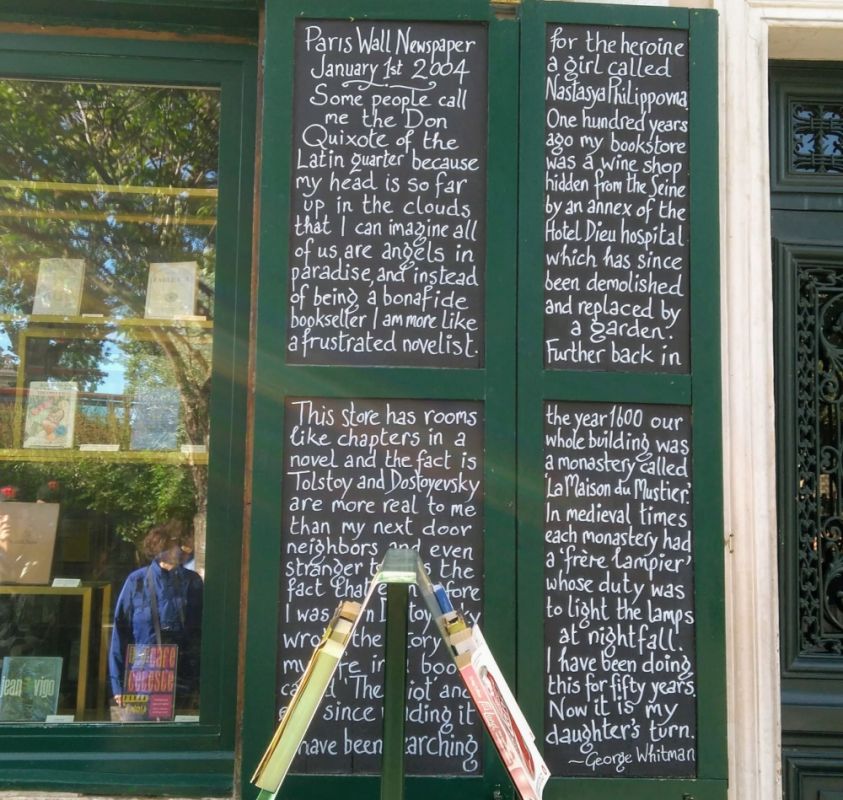 Paris Wall Newspaper
January 1st 2004
Some people call
me the Don
Quixote of the
Latin quarter because
my head is so far
up in the clouds
that I can imagine all
of us are angels in
paradise, and instead
of being a bonafide
bookseller I am more like
a frustrated novelist.
This store has rooms
like chapters in a
novel and the fact is
Tolstoy and Dostoyevsky
are more real to me
than my next door
neighbors and even
stranger the
fact that
I was
the
my in
'The and
since it
have been
for the heroine
a girl called
Nastasya Philippovna.
One hundred years
ago my bookstore
was a wine shop
hidden from the Seine
by an annex of the
Hotel Dieu hospital
which has since
been demolished
and replaced by
a garden.
Further back in
the year 1600 our
whole building was
a monastery called
'La Maison du Mustier'
In medieval times
each monastery had
a 'frère lampier'
whose duty was
to light the lamps
at nightfall.
I have been doing
this for fifty years.
Now it is my
daughter's turn.
~George Whitman
jean vigo
CELESTE